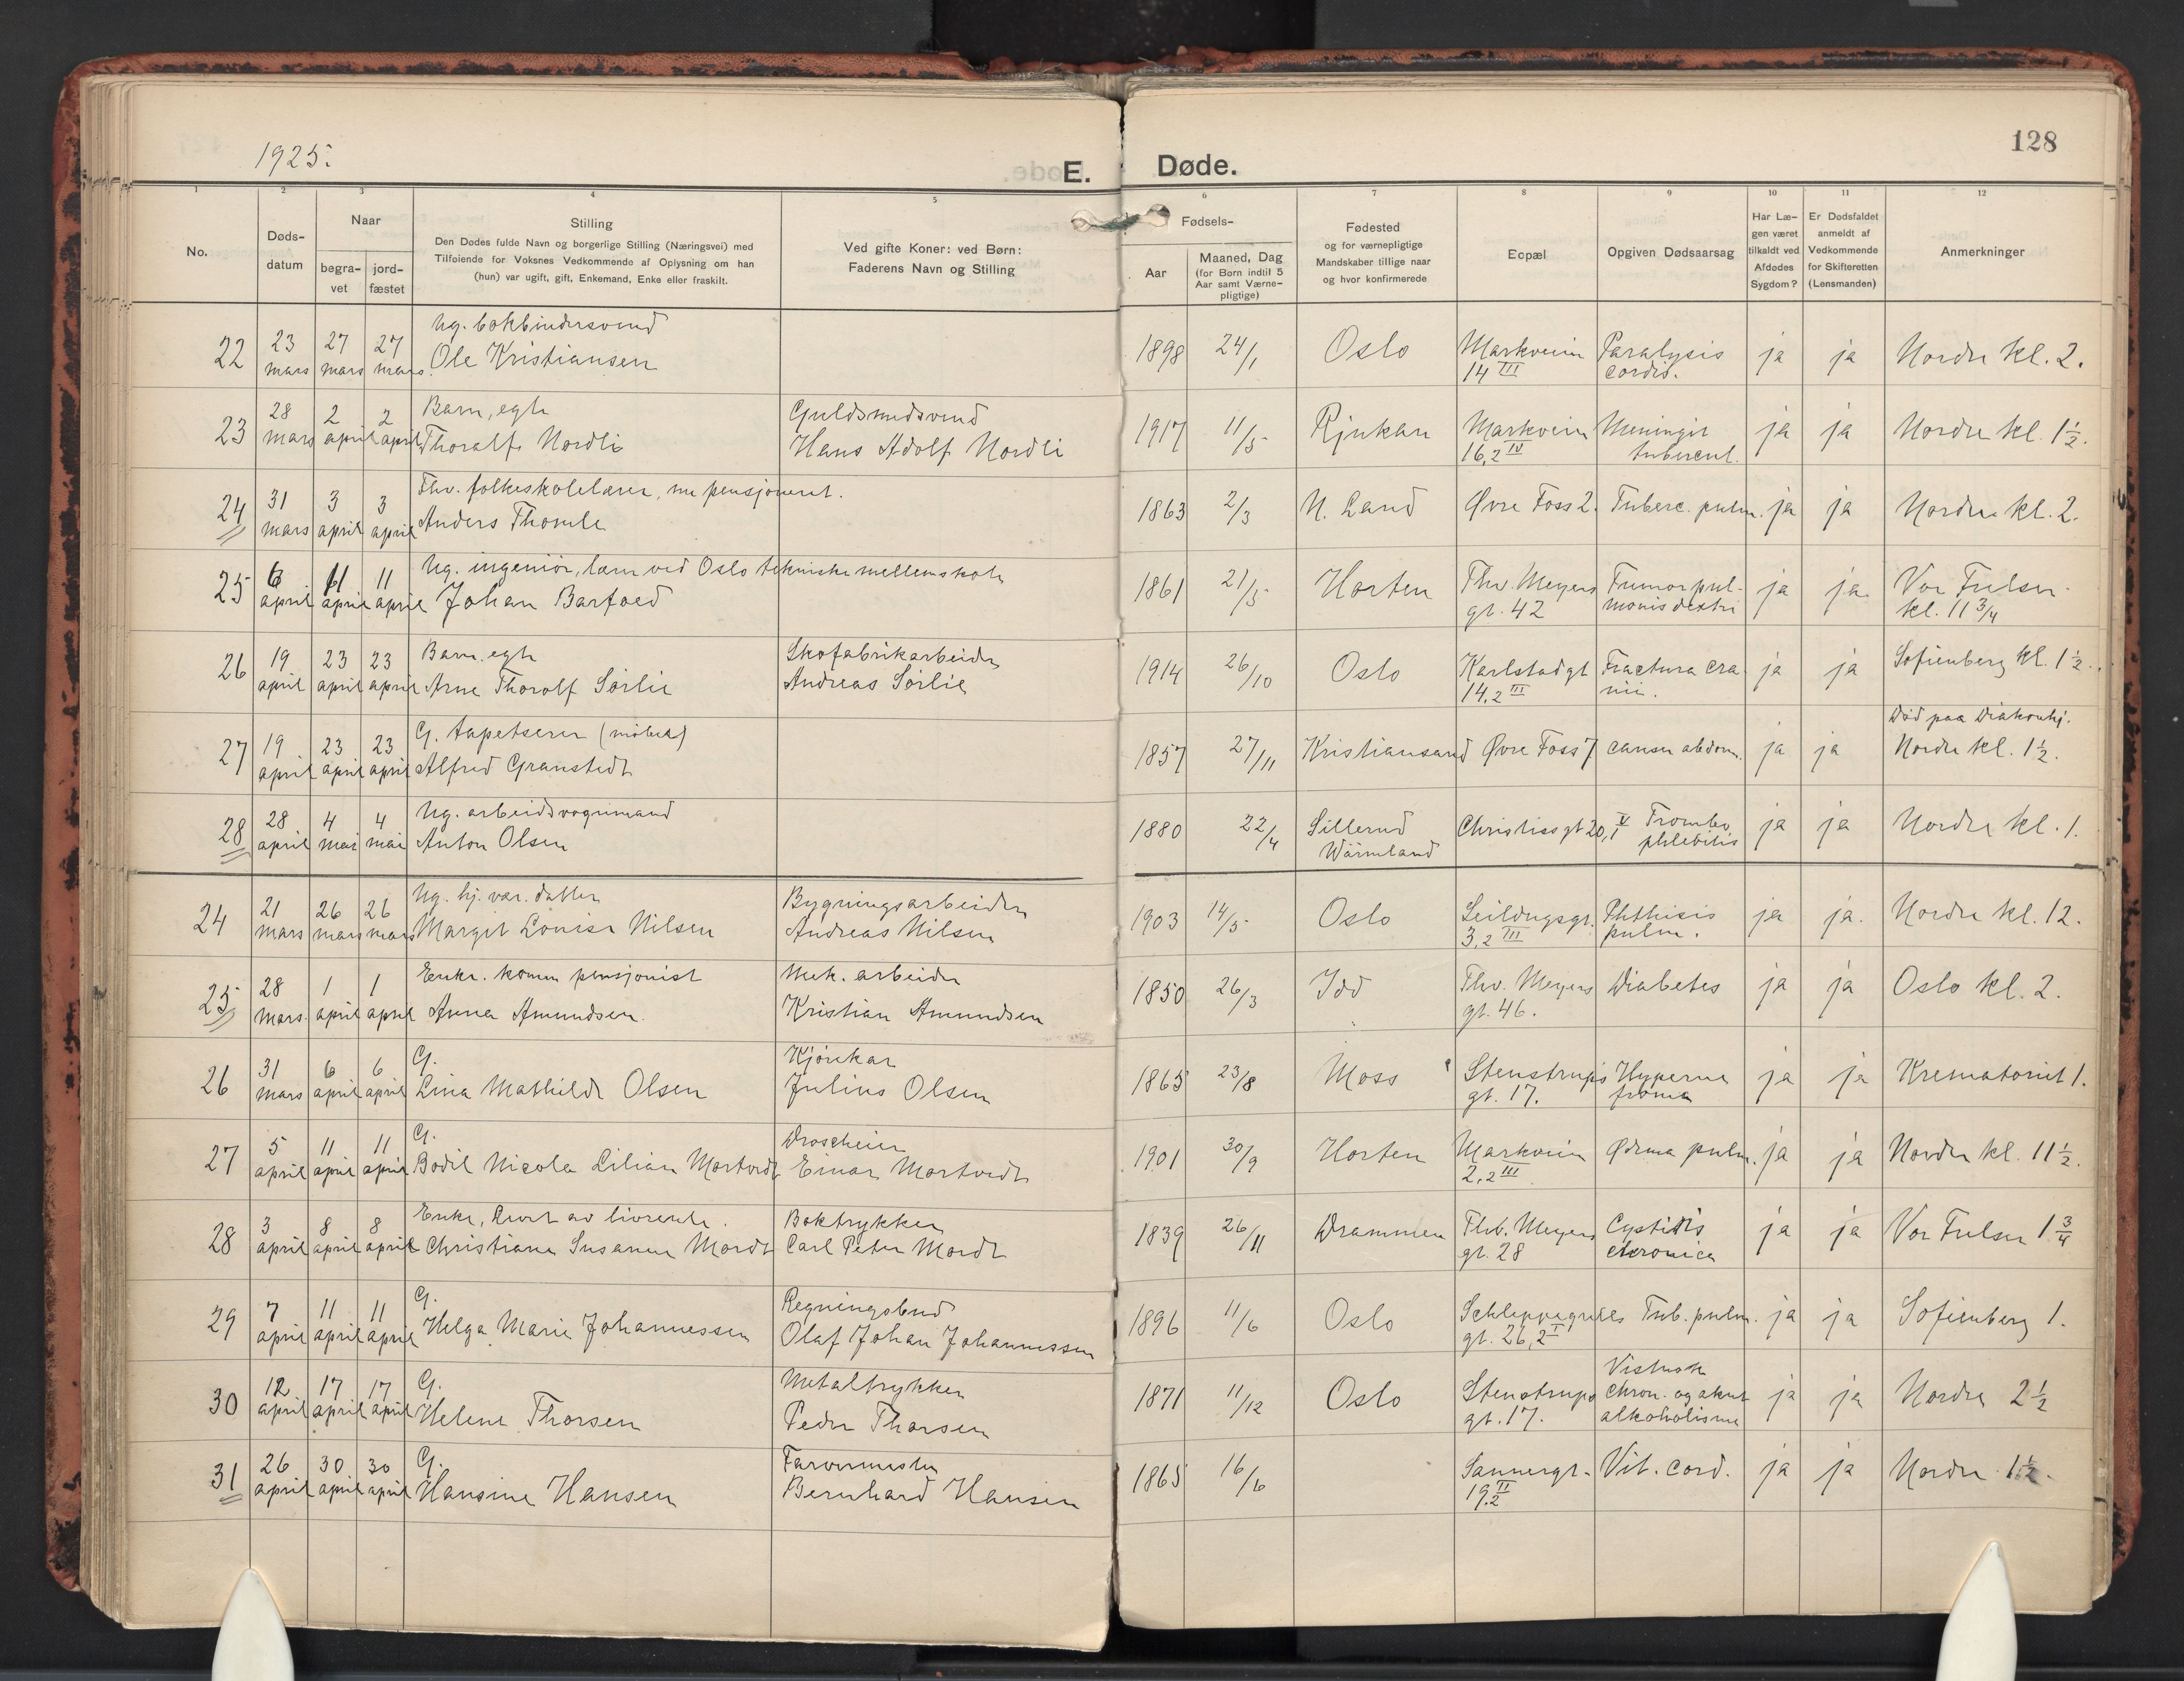 1925.
E. Døde.
128
1 2 3 4 5 6 7 8 9 10 11 12
No.
Døds-
datum
Naar
begra-
vet
jord-
fæstet
Stilling
Den Dødes fulde Navn og borgerlige Stilling (Næringsvei) med
Tilføiende for Voksnes Vedkommende af Oplysning om han
(hun) var ugift, gift, Enkemand, Enke eller fraskilt.
Ved gifte Koner: ved Børn:
Faderens Navn og Stilling
Fødsels-
Aar
Maaned, Dag
(for Børn indtil 5
Aar samt Værne-
pligtige)
Fødested
og for værnepligtige
Mandskaber tillige naar
og hvor konfirmerede
Bopæl
Opgiven Dødsaarsag
Har Læ-
gen været
tilkaldt ved
Afdødes
Sygdom?
Er Dødsfaldet
anmeldt af
Vedkommende
for Skifteretten
(Lensmanden)
Anmerkninger
Ug. bokbindersvend
22 23 27 27 Ole Kristiansen 1898 24/1 Oslo Markveien Paralysis ja ja Nordre kl. 2.
mars mars mars 14 III cordis.
28 2 2 Barn, egte Guldsmedsvend
23 mars april april Thoralf Nordli Hans Adolf Nordli 1917 11/5 Rjukan Markveien Meningit ja ja Nordre kl. 1 1/2.
16,2 IV tubercul.
Fhv. folkeskolelærer, nu pensjoneret.
24 31 3 3 Anders Thomle 1863 2/3 N. Land Øvre Foss 2. Tuberc. pulm. ja ja Nordre kl. 2.
mars april april
Ug. ingeniör, lærer ved Oslo tekniske mellemskole
25 6 11 11 Johan Barfoed 1861 21/5 Horten Thv. Meyers Tumor pul- ja ja Vor Frelser
april april april gt. 42 monis dextri kl. 11 3/4
26 19 23 23 Barn. egte Skofabrikarbeider 1914 26/10 Oslo Karlstadgt Fractura cra- ja ja Sofienberg kl. 1 1/2.
april april april Arne Thorolf Sörlie Andreas Sörlie 14,2 III nii.
Död paa Diakonhj.
27 19 23 23 G. tapetserer (møbel) 1857 27/11 Kristiansand Øvre Foss 7 cancer abdom. ja ja Nordre kl. 1 1/2.
april april april Alfred Granstedt
28 28 4 4 Ug. arbeidsvognmand 1880 22/4 Sillerud Christiesgt 20,1 V Trombo ja ja Nordre kl. 1.
april mai mai Anton Olsen Wärmland phlebitis
Ug. hj. vær. datter Bygningsarbeider
24 21 26 26 Margit Louise Nilsen Andreas Nilsen 1903 14/5 Oslo Seildugsgt. Phthisis ja ja. Nordre kl. 12.
mars mars mars 3,2 III pulm.
Enke. komm pensjonist Mek. arbeider
25 28 1 1 Anna Amundsen. Kristian Amundsen 1850 26/3 Idd Thv. Meyers Diabetes ja ja Oslo kl. 2.
mars. april april gt. 46.
G. Kjörekar
26 31 6 6 Lina Mathilde Olsen Julius Olsen 1865 23/8 Moss Stenstrups ja ja Krematoriet 1.
mars april april gt. 17.
G. Droscheeier
27 5 11 11 Bodil Nicola Lilian Mortvedt Einar Mortvedt 1901 30/9 Horten Markveien Ødema pulm. ja ja Nordre kl. 11 1/2.
april april april 2,2 III
Enke, levet av livrente. Boktrykker
28 3 8 8 Christiane Susanne Mordt Carl Peter Mordt 1839 26/11 Drammen Thv. Meyers Cystitis ja ja Vor Frelser 1 3/4
april april april gt. 28 chronica
G. Regningsbud
29 7 11 11 Helga Marie Johannessen Olaf Johan Johannessen 1896 11/6 Oslo Schleppegrells Tub. pulm. ja ja Sofienberg 1.
april april april gt. 26,2 I
G. Metaltrykker
30 12 17 17 Helene Thorsen Peder Thorsen 1871 11/12 Oslo Stenstrups chron. og akut ja ja Nordre 2 1/2
april april april gt. 17. alkoholisme
G. Farvermester
31 26 30 30 Hansine Hansen Bernhard Hansen 1865 16/6 Sannergt. Vit. cord. ja ja Nordre 1 1/2.
april april april 19.2 II